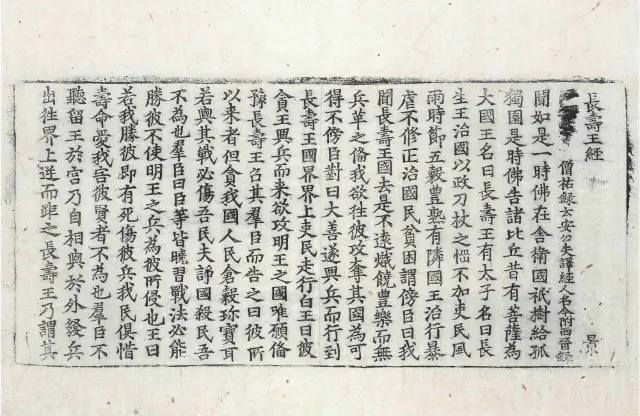 長壽王經 景
僧祐録云安公失譯經人名今附西晉録
聞如是一時佛在舍衛國祇樹給孤
獨園是時佛告諸比丘昔有菩薩為
大國王名曰長壽王有太子名曰長
生王治國以政刀杖之惱不加吏民風
雨時節五穀豊熟有隣國王治行暴
虐不修正治國民貧困謂傍臣曰我
聞長壽王國去是不遠熾饒豊樂而無
兵革之俻我欲往彼攻奪其國為可
得不傍臣對曰大善遂興兵而行到
長壽王國界界上吏民走行白王曰彼
貪王興兵而来欲攻明王之國唯願俻
豫長壽王召其羣臣而告之曰彼所
以来者但貪我國人民倉穀珎寶耳
若與其戰必傷吾民夫諍國殺民吾
不為也羣臣曰臣等皆曉習戰法必能
勝彼不使明王之兵為彼所侵也王曰
若我勝彼即有死傷彼兵我民俱惜
壽命愛我害彼賢者不為也羣臣不
聽留王於宮乃自相與於外發兵
出往界上逆而距之長壽王乃謂其